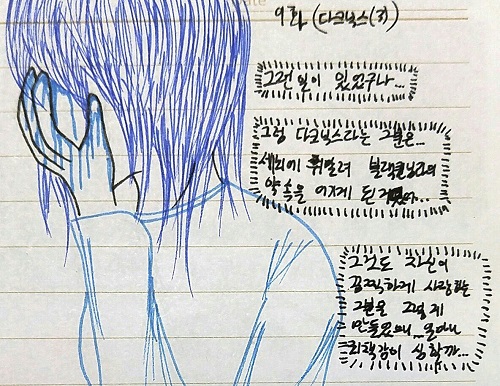 9화 (다크닉스(3)
그런 일이 있었구나...
그럼 다크닉스라는 그분은...
세뇌에 휘말려 블랙퀸님과의
약속을 어기게 된거였어..
그것도 자신이
끔찍하게 사랑하는
그분을 그렇게
만들었으니 얼마나
죄책감이 심할까...